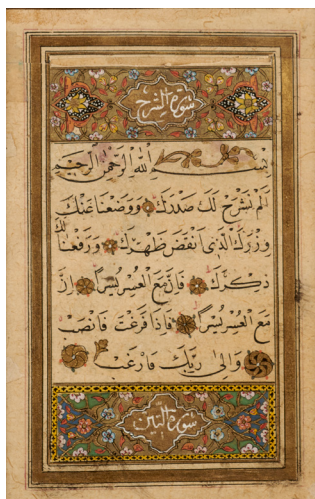 سورة الشرح
بسم الله الرحمن الرحيم
الم نشرح لك صدرك ووضعنا عنك
وزرك الذى انقض ظهرك ورفعنا لك
ذكرك فان مع العسر يسراً ان
مع العسر يسراً فاذا فرغت فانصب
والى ربك فارغب
سورة التين